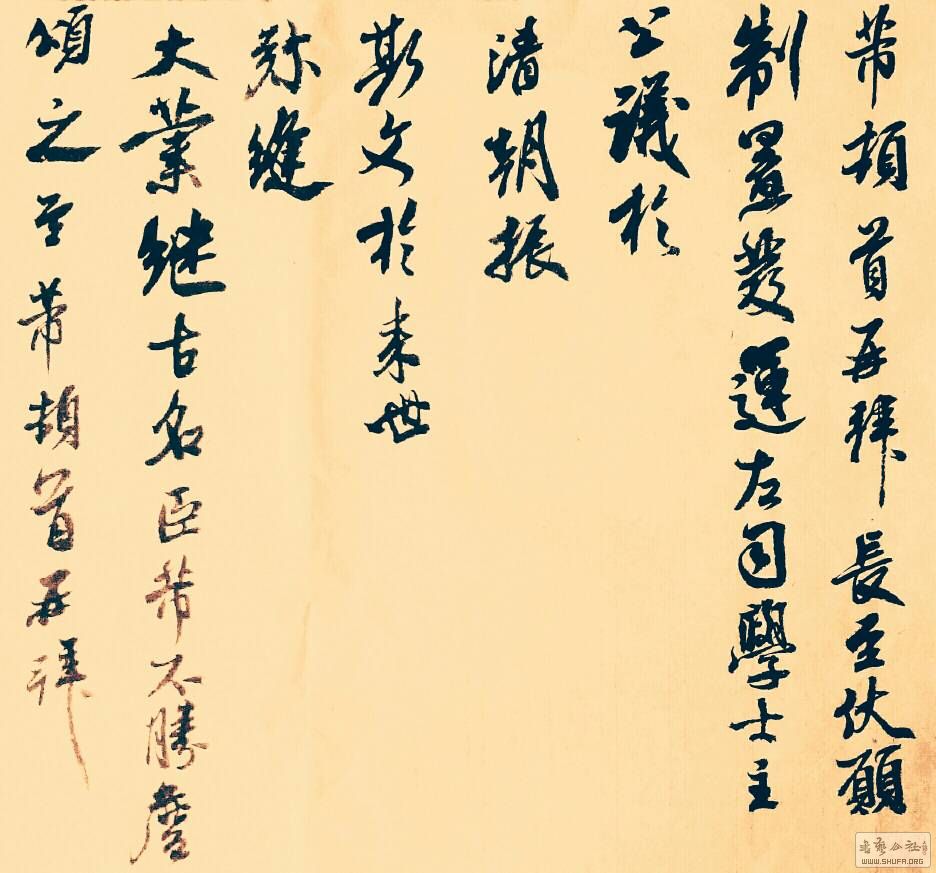 芾頓首再拜長至伏願
制置發運左司學士主
公議於
清朝振
斯文於來世
弥縫
大業継古名臣芾不勝詹
頌之至芾頓首再拜
WWW.SHUFA.ORG